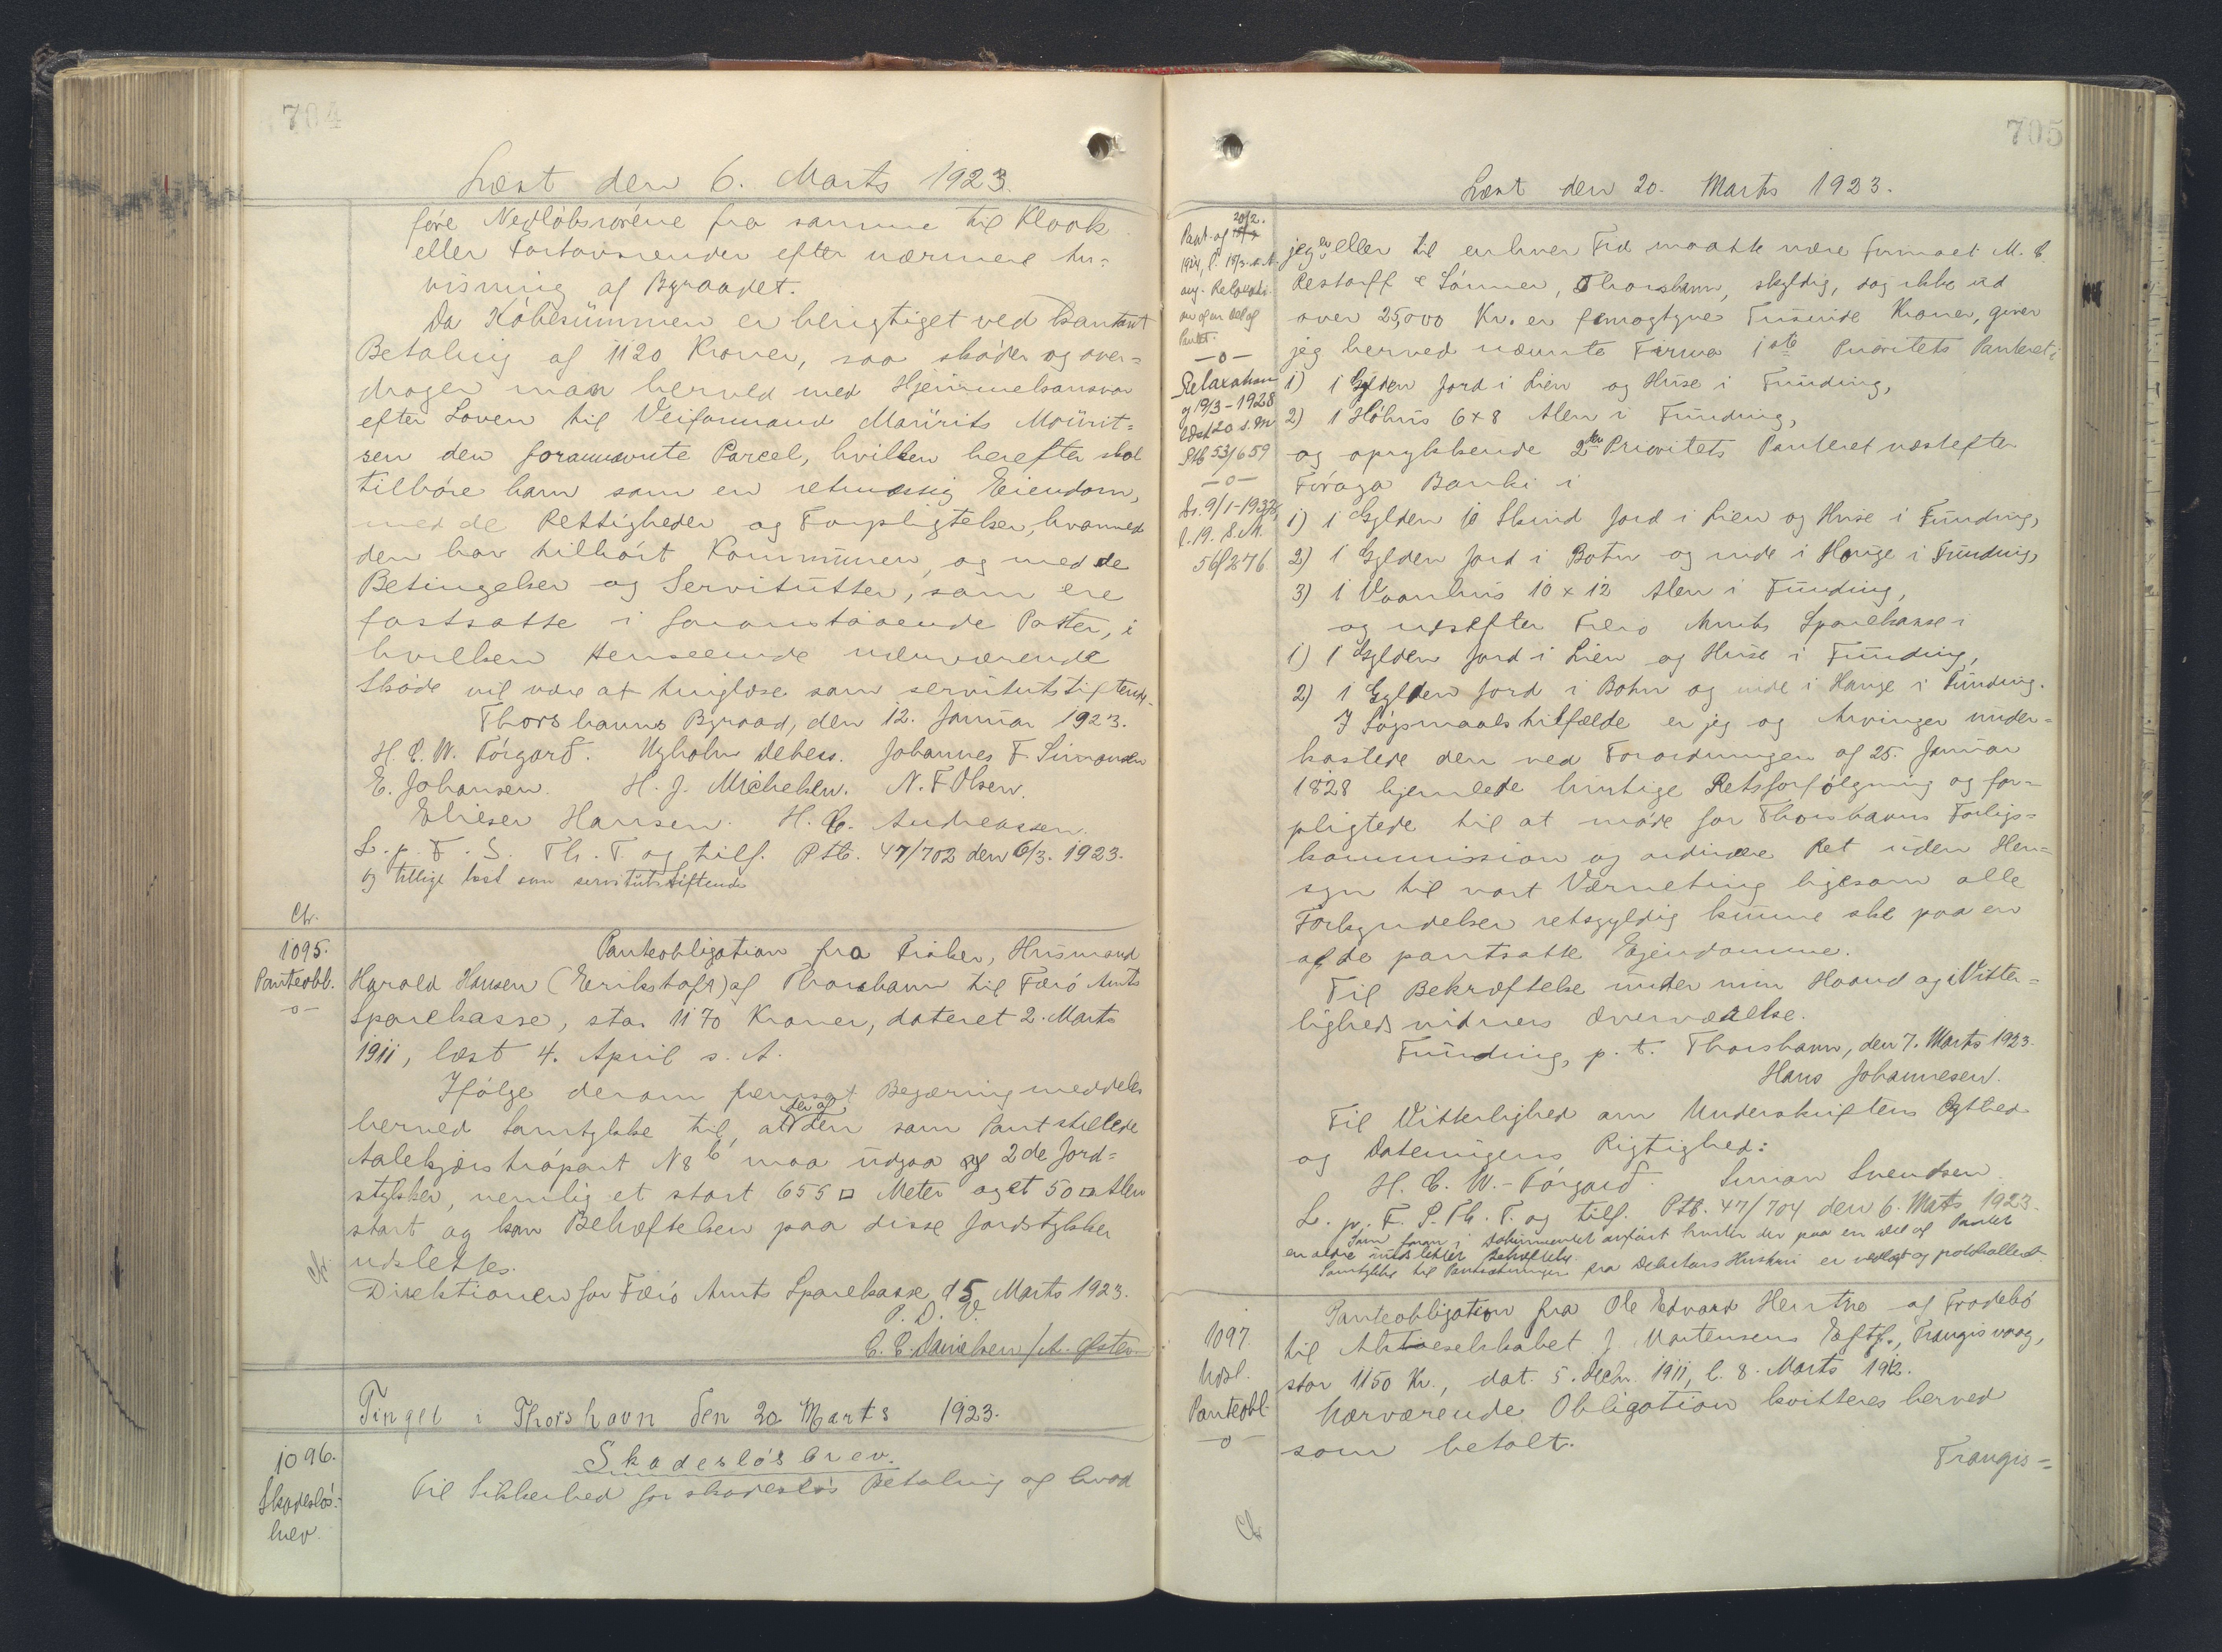 704
Læst den 6. Marts 1923.
føre Nedløbsrørene fra samme til Kloak
eller Fortovsrender efter nærmere An-
visning af Byraadet.
Da Købesummen er berigtiget ved kontant
Betaling af 1120 Kroner, saa skøder og over-
drager man herved med Hjemmelsansvar
efter Loven til Veiformand Maurits Mourit-
sen den forannævnte Parcel, hvilken herefter skal
tilhøre ham som en retmæssig Eiendom,
med de Rettigheder og Forpligtelser, hvormed
den har tilhørt Kommunen, og med de
Betingelser og Servitutter, som ere
fastsatte i foranstaaende Poster, i
hvilken Henseende nærværende
Skøde vil være at tinglæse som servitutstiftende.
Thorshavns Byraad, den 12. Januar 1923.
H. C. W. Tórgarð. Ugholm Debess. Johannes F. Simonsen
E. Johansen. H. J. Michelsen. N. F. Olsen.
Elieser Hansen. H. C. Andreassen.
L. p. F. S. Th. T. og tilf. Ptb. 47/702 den 6/3. 1923.
og tillige læst som servitutstiftende
Ch.
1095.
Panteobl.
-o-
Panteobligation fra Fisker, Husmand
Harald Hansen (Erikstoft) af Thorshavn til Færø Amts
Sparekasse, stor 1170 Kroner, dateret 2. Marts
1911, læst 4. April s. A.
Ifølge derom fremsat Begæring meddeles
herved Samtykke til, at der af den som Pant stillede
Aalekjærs trøpart N 8 b maa udgaa af 2de Jord-
stykker, nemlig et stort 655 □ Meter og et 50 □ Alen
stort og kan Behæftelsen paa disse Jordstykker
udslettes.
Direktionen for Færø Amts Sparekasse, d 5 Marts 1923.
P. D. V.
C. C. Danielsen / A.
Tinget i Thorshavn den 20 Marts 1923.
1096.
Skadesløs-
brev.
Skadesløsbrev.
Til Sikkerhed for skadesløs Betaling af hvad
705
Læst den 20. Marts 1923.
20/2.
Pant. af
1924, l. 18/3. s. A.
ang. Relaxati-
on af en Del af
Pantet.
-o-
Relaxation
af 19/3-1928
læst 20 s. M.
Ptb 53/659
-o-
Kv. 9/1-1937,
l. 19. s. M.
56/276
jeg er eller til enhver Tid maatte være Firmaet M. C.
Restorff & Sønner, Thorshavn, skyldig, dog ikke ud
over 25,000 Kr. er femogtyve Tusinde Kroner, giver
jeg herved nævnte Firma 1ste Prioritets Panteret i
1) 1 Gylden Jord i Lien og Huse i Funding,
2) 1 Høhus 6 x 8 Alen i Funding,
og oprykkende 2den Prioritets Panteret næstefter
Føroya Banki i
1) 1 Gylden 10 Skind Jord i Lien og Huse i Funding,
2) 1 Gylden Jord i Botn og inde i Hauge i Funding,
3) 1 Vaanhus 10 x 12 Alen i Funding,
og næstefter Færø Amts Sparekasse i
1) 1 Gylden Jord i Lien og Huse i Funding,
2) 1 Gylden Jord i Botn og inde i Hauge i Funding.
I Søgsmaalstilfælde er jeg og Arvinger under-
kastede den ved Forordningen af 25. Januar
1828 hjemlede hurtige Retsforfølgning og for-
pligtede til at møde for Thorshavns Forligs-
kommission og ordinære Ret uden Hen-
syn til vort Værneting ligesom alle
Forkyndelser retsgyldig kunne ske paa en
af de pantsatte Ejendomme.
Til Bekræftelse under min Haand og i Vitter-
lighedsvidners Overværelse.
Funding, p. t. Thorshavn, den 7. Marts 1923.
Hans Johannesen.
Til Vitterlighed om Underskriftens Ægthed
og Dateringens Rigtighed:
H. C. W. Tórgarð. Simon Svendsen
L. p. F. S. Th. T. og tilf. Ptb. 47/704 den 6. Marts 1923.
Som foran i Dokumentet anført hviler der paa en Del af Pantet
en ældre uudslettet Behæftelse.
Samtykke til Pantsætningen fra Debitors Hustru er vedlagt og protokolleret.
1097.
Udsl.
Panteobl.
-o-
Panteobligation fra Ole Edvard Hentze af Frodebø
til Aktieselskabet J. Mortensens Eftf., Trangisvaag,
stor 1150 Kr., dat. 5. Decbr. 1911, l. 8. Marts 1912.
Nærværende Obligation kvitteres herved
som betalt.
Trangis-
Ch